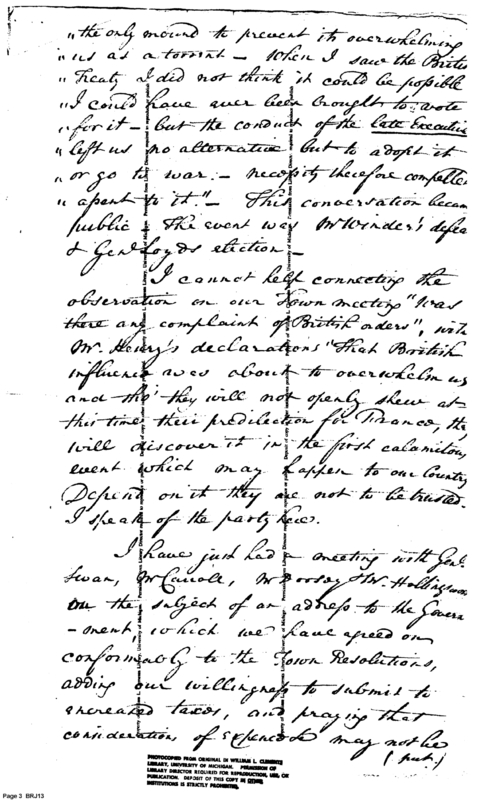 " the only mound to prevent its overwhelming
" us as a torrent - When I saw the British
" Treaty I did not think it could be possible
" I could have ever been brought to vote
" for it - but the conduct of the late Executive
" left us no alternative but to adopt it
" or go to war. - necessity therefore compelled
" assent to it." - This conversation became
public & the event was Mr Winder's defeat
& Genl Loyds election -
I cannot help connecting the
observation in our Town meeting "Was
there any complaint of British orders", with
Mr. Henry's declarations "That British
influence was about to overwhelm us
and tho' they will not openly shew at
this time their predilection for France, they
will discover it in the first calamitous
event which may happen to our Country
Depend on it they are not to be trusted.
I speak of the party here.
I have just had a meeting with Genl.
Swan, Mr Carroll, Mr Dorsey & Mr. Hollingsworth
on the subject of an address to the Govern
-ment, which we have agreed on
conformably to the Town Resolutions,
adding our willingness to submit to
encreased taxes, and praying that
considerations of Expence may not be
(put)
PHOTOCOPIED FROM ORIGINAL IN WILLIAM L. CLEMENTS
LIBRARY, UNIVERSITY OF MICHIGAN. PERMISSION OF
LIBRARY DIRECTOR REQUIRED FOR REPRODUCTION, USE, OR
PUBLICATION. DEPOSIT OF THIS COPY IN OTHER
INSTITUTIONS IS STRICTLY PROHIBITED.
Page 3 BRJ13